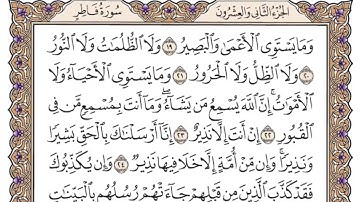 سُورَةُ فَاطِرٍ الجُزْءُ الثَّانِي وَالعِشْرُونَ
وَمَا يَسْتَوِى ٱلْأَعْمَىٰ وَٱلْبَصِيرُ ١٩ وَلَا ٱلظُّلُمَٰتُ وَلَا ٱلنُّورُ
٢٠ وَلَا ٱلظِّلُّ وَلَا ٱلْحَرُورُ ٢١ وَمَا يَسْتَوِى ٱلْأَحْيَآءُ وَلَا
ٱلْأَمْوَٰتُ إِنَّ ٱللَّهَ يُسْمِعُ مَن يَشَآءُ وَمَآ أَنتَ بِمُسْمِعٍ مَّن فِى
ٱلْقُبُورِ ٢٢ إِنْ أَنتَ إِلَّا نَذِيرٌ ٢٣ إِنَّآ أَرْسَلْنَٰكَ بِٱلْحَقِّ بَشِيرًا
وَنَذِيرًا وَإِن مِّنْ أُمَّةٍ إِلَّا خَلَا فِيهَا نَذِيرٌ ٢٤ وَإِن يُكَذِّبُوكَ
فَقَدْ كَذَّبَ ٱلَّذِينَ مِن قَبْلِهِمْ جَآءَتْهُمْ رُسُلُهُم بِٱلْبَيِّنَٰتِ